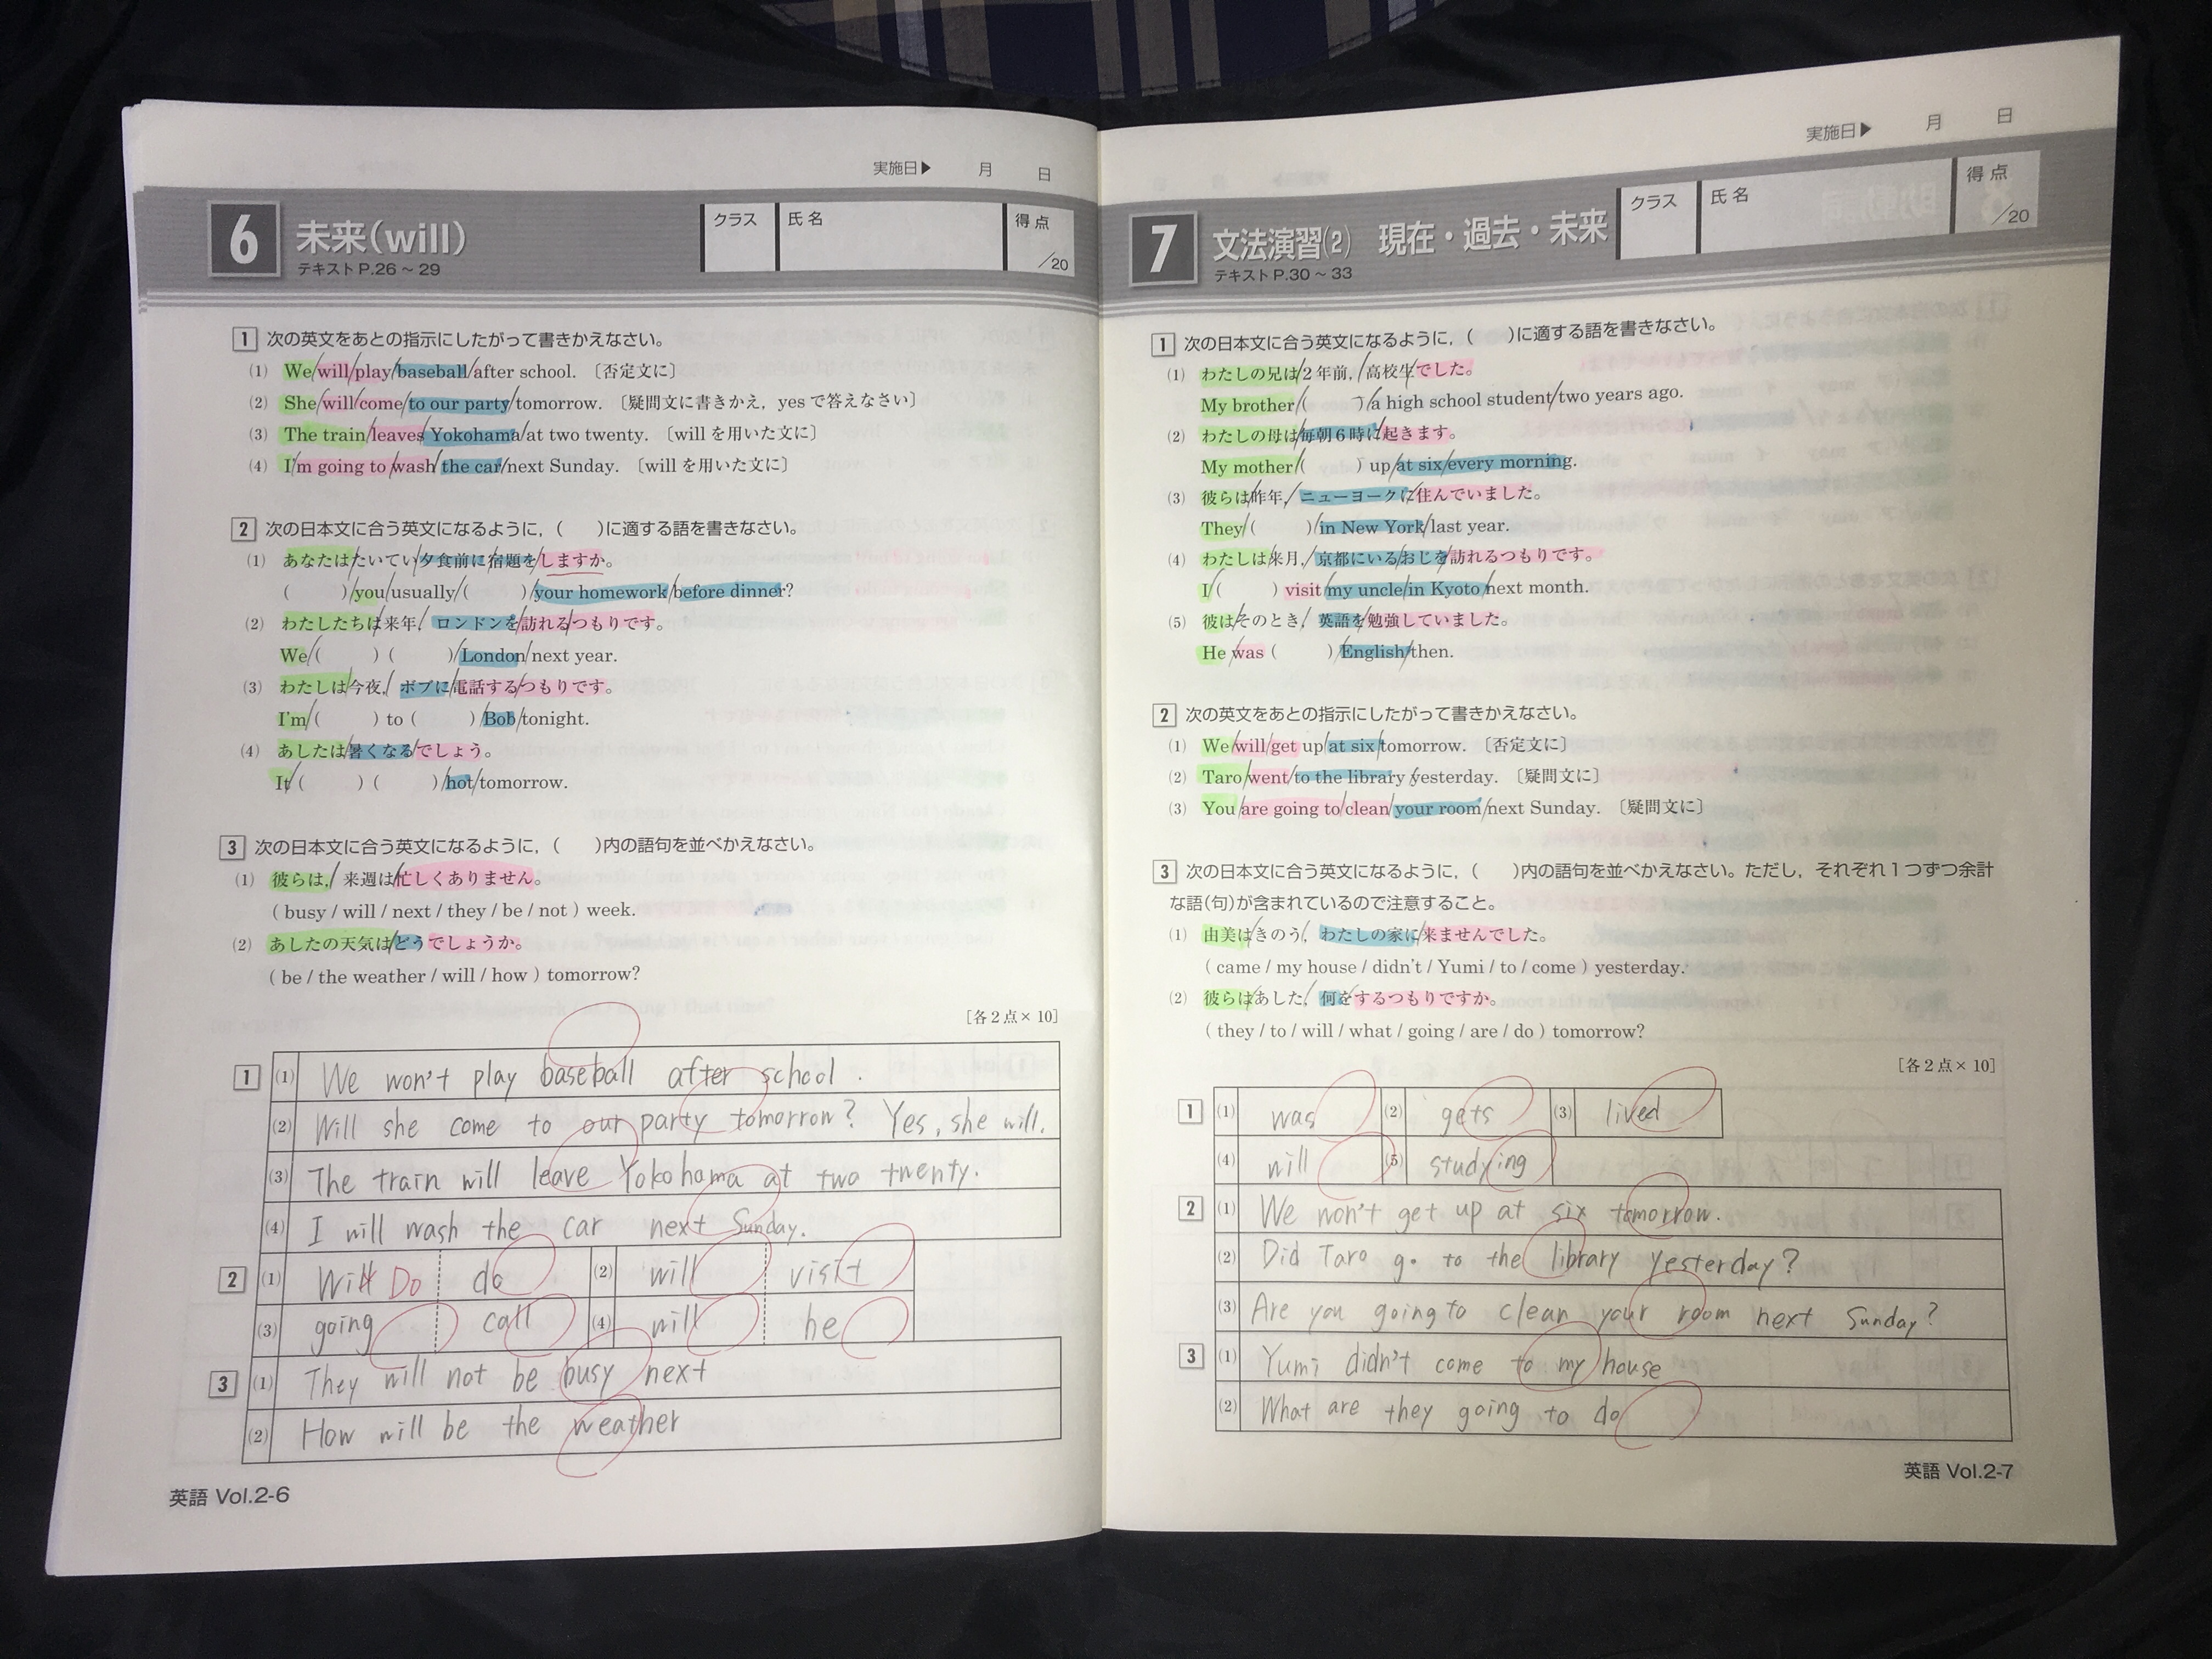 実施日▶ 月 日
6 未来(will)
テキストP.26～29
クラス 氏名 得点 /20
1 次の英文をあとの指示にしたがって書きかえなさい。
(1) We/will/play/baseball/after school. 〔否定文に〕
(2) She/will/come/to our party/tomorrow. 〔疑問文に書きかえ，yesで答えなさい〕
(3) The train/leaves/Yokohama/at two twenty. 〔willを用いた文に〕
(4) I/'m going to/wash/the car/next Sunday. 〔willを用いた文に〕
2 次の日本文に合う英文になるように，( )に適する語を書きなさい。
(1) あなたは/たいてい/夕食前に/宿題を/しますか。
( )/you/usually/( )/your homework/before dinner?
(2) わたしたちは/来年，/ロンドンを/訪れる/つもりです。
We/( ) ( )/London/next year.
(3) わたしは/今夜，/ボブに/電話する/つもりです。
I'm/( ) to ( )/Bob/tonight.
(4) あしたは/暑くなる/でしょう。
It/( ) ( )/hot/tomorrow.
3 次の日本文に合う英文になるように，( )内の語句を並べかえなさい。
(1) 彼らは，/来週は/忙しくありません。
( busy / will / next / they / be / not ) week.
(2) あしたの天気は/どう/でしょうか。
( be / the weather / will / how ) tomorrow?
［各2点×10］
1 (1) We won't play baseball after school.
(2) Will she come to our party tomorrow? Yes, she will.
(3) The train will leave Yokohama at two twenty.
(4) I will wash the car next Sunday.
2 (1) Will Do do (2) will visit
(3) going call (4) will be
3 (1) They will not be busy next
(2) How will be the weather
英語 Vol.2-6
実施日▶ 月 日
7 文法演習(2) 現在・過去・未来
テキストP.30～33
クラス 氏名 得点 /20
1 次の日本文に合う英文になるように，( )に適する語を書きなさい。
(1) わたしの兄は/2年前，/高校生/でした。
My brother/( )/a high school student/two years ago.
(2) わたしの母は/毎朝6時に/起きます。
My mother/( ) up/at six/every morning.
(3) 彼らは/昨年，/ニューヨークに/住んでいました。
They/( )/in New York/last year.
(4) わたしは/来月，/京都にいる/おじを/訪れるつもりです。
I/( ) visit/my uncle/in Kyoto/next month.
(5) 彼は/そのとき，/英語を/勉強していました。
He was ( )/English/then.
2 次の英文をあとの指示にしたがって書きかえなさい。
(1) We/will/get up/at six/tomorrow. 〔否定文に〕
(2) Taro/went/to the library/yesterday. 〔疑問文に〕
(3) You/are going to/clean/your room/next Sunday. 〔疑問文に〕
3 次の日本文に合う英文になるように，( )内の語句を並べかえなさい。ただし，それぞれ1つずつ余計
な語(句)が含まれているので注意すること。
(1) 由美は/きのう，/わたしの家に/来ませんでした。
( came / my house / didn't / Yumi / to / come ) yesterday.
(2) 彼らは/あした，/何を/するつもりですか。
( they / to / will / what / going / are / do ) tomorrow?
［各2点×10］
1 (1) was (2) gets (3) lived
(4) will (5) studying
2 (1) We won't get up at six tomorrow.
(2) Did Taro go to the library yesterday?
(3) Are you going to clean your room next Sunday?
3 (1) Yumi didn't come to my house
(2) What are they going to do
英語 Vol.2-7